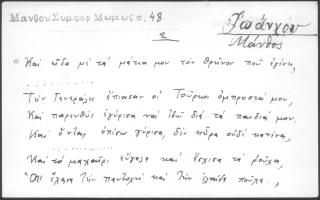 Μάνθου Συμφορ Μωρέως σ. 48
Ἰωάννου
Μάνθος
2
"Καὶ εἶδα μὲ τὰ μάτια μου τὸν θρῆνον ποὺ ἐγίνη,
..........
Τὸν Γενεράλη ἔπιασαν οἱ Τοῦρκοι ὀμπροστά μου.
Καὶ παρευθὺς ἐγύρισα νὰ ἰδῶ διὰ τὰ παιδιά μου.
Καὶ ὄντας ὀπίσω γύρισα, δὲν ηὗρα οὐδὲ κανένα,
..........
Καὶ τὸ μαχαῖρι εὔγαλα καὶ ἔσχισα τὰ ροῦχα,
Ὅτι ἔχασα τὴν παντοχὴ καὶ τὴν ἐλπίδα ποὖχα.